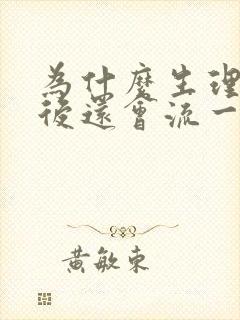 為什麼生理
後還會流一
黃敏東